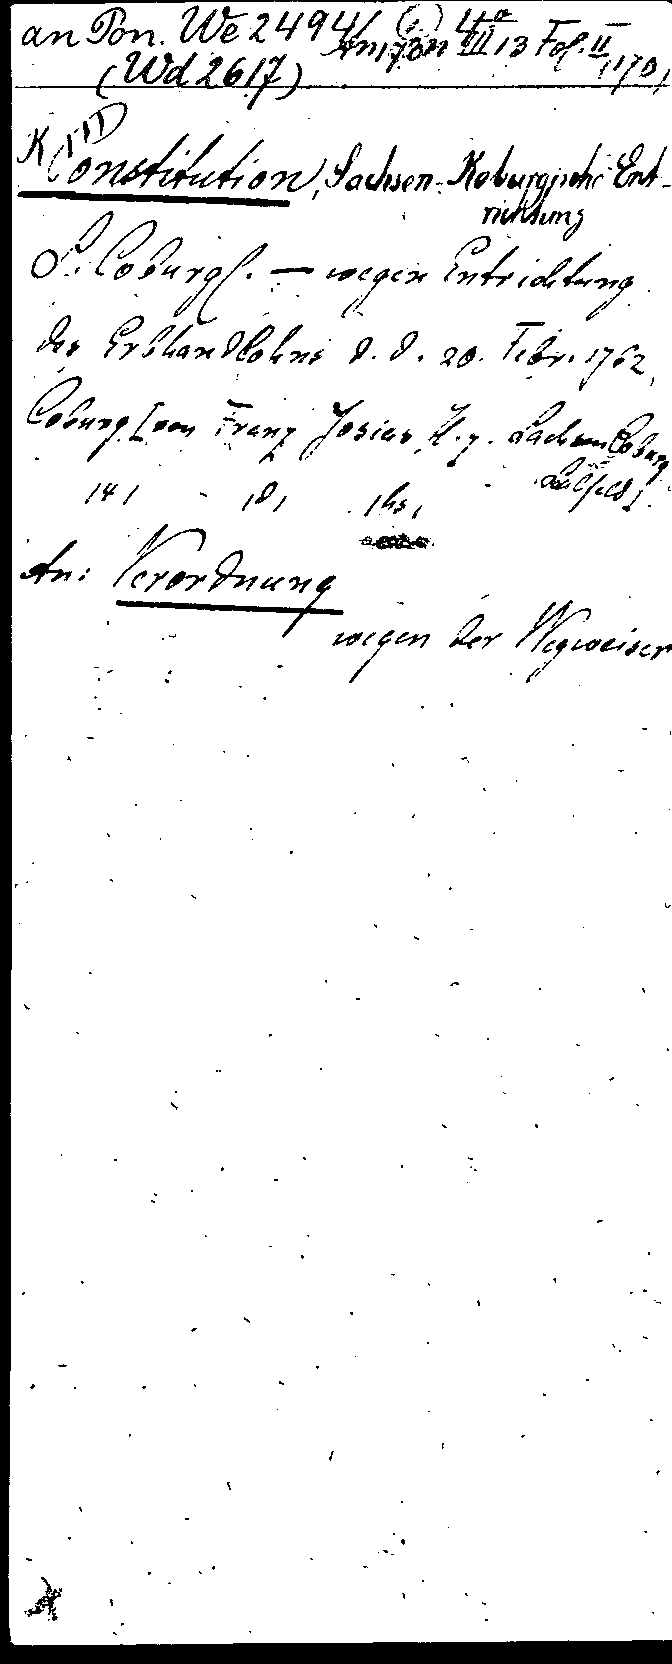 an Pon. We 2494/ 4° III 13 Fol. II (170)
(Wd 2617)
K
Constitution, Sachsen-Koburgische Ent-
richtung
S. Coburgs. — wegen Entrichtung
des Erbhandlohns d. d. 20. Febr. 1762,
Coburg [von Franz Josias, H. z. Sachsen Coburg
Saalfeld].
An: Verordnung
wegen der Wegweiser